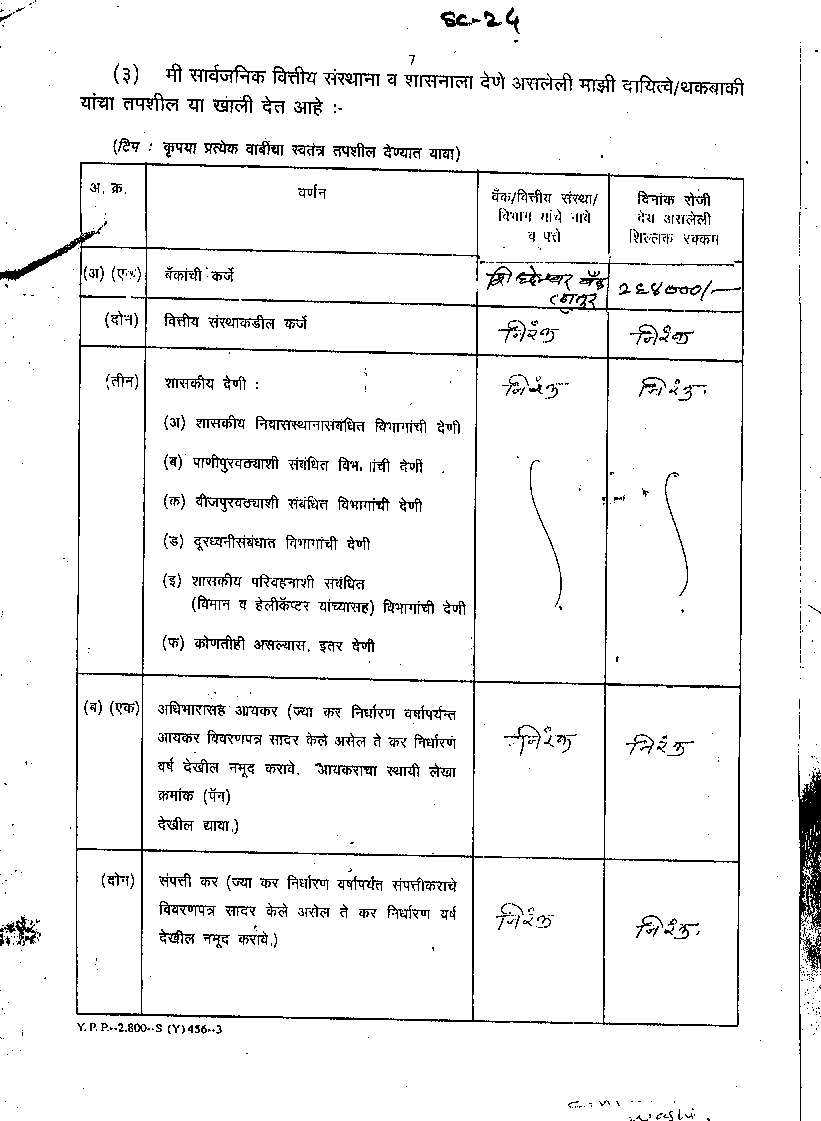 SC-24
7
(३) मी सार्वजनिक वित्तीय संस्थाना व शासनाला देणे असलेली माझी दायित्वे/थकबाकी
यांचा तपशील या खाली देत आहे :-
(टिप : कृपया प्रत्येक बाबींचा स्वतंत्र तपशील देण्यात यावा)
अ. क्र.
वर्णन
बँक/वित्तीय संस्था/
विभाग यांचे नावे
व पत्ते
दिनांक रोजी
देय असलेली
शिल्लक रक्कम
(अ) (एक) बँकांची कर्जे
बँक
लातूर
२६४०००/-
(दोन) वित्तीय संस्थाकडील कर्जे निरंक निरंक
(तीन) शासकीय देणी : निरंक निरंक.
(अ) शासकीय निवासस्थानासंबंधित विभागांची देणी
(ब) पाणीपुरवठ्याशी संबंधित विभागांची देणी
(क) वीजपुरवठ्याशी संबंधित विभागांची देणी
(ड) दूरध्वनीसंबधात विभागांची देणी
(इ) शासकीय परिवहनाशी संबंधित
(विमान व हेलीकॅप्टर यांच्यासह) विभागांची देणी
(फ) कोणतीही असल्यास, इतर देणी
(ब) (एक) अधिभारासह आयकर (ज्या कर निर्धारण वर्षापर्यन्त
आयकर विवरणपत्र सादर केले असेल ते कर निर्धारण
वर्ष देखील नमूद करावे. आयकराचा स्थायी लेखा
क्रमांक (पॅन)
देखील द्यावा.)
निरंक निरंक
(दोन) संपत्ती कर (ज्या कर निर्धारण वर्षापर्यंत संपत्तीकराचे
विवरणपत्र सादर केले असेल ते कर निर्धारण वर्ष
देखील नमूद करावे.)
निरंक निरंक.
Y. P. P.--2,800--S (Y) 456--3